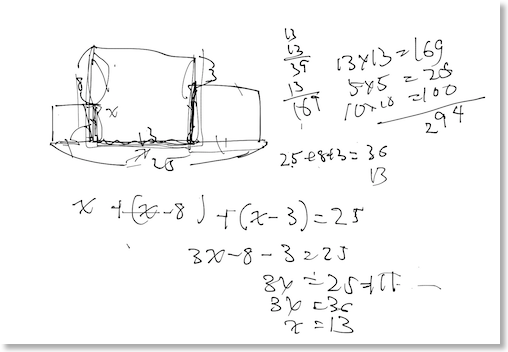 8
x
13
3
x
25
13
13
39
13
169
13x13=169
5x5=25
10x10=100
294
25+8+3=36
13
x+(x-8)+(x-3)=25
3x-8-3=25
3x=25+11
3x=36
x=13